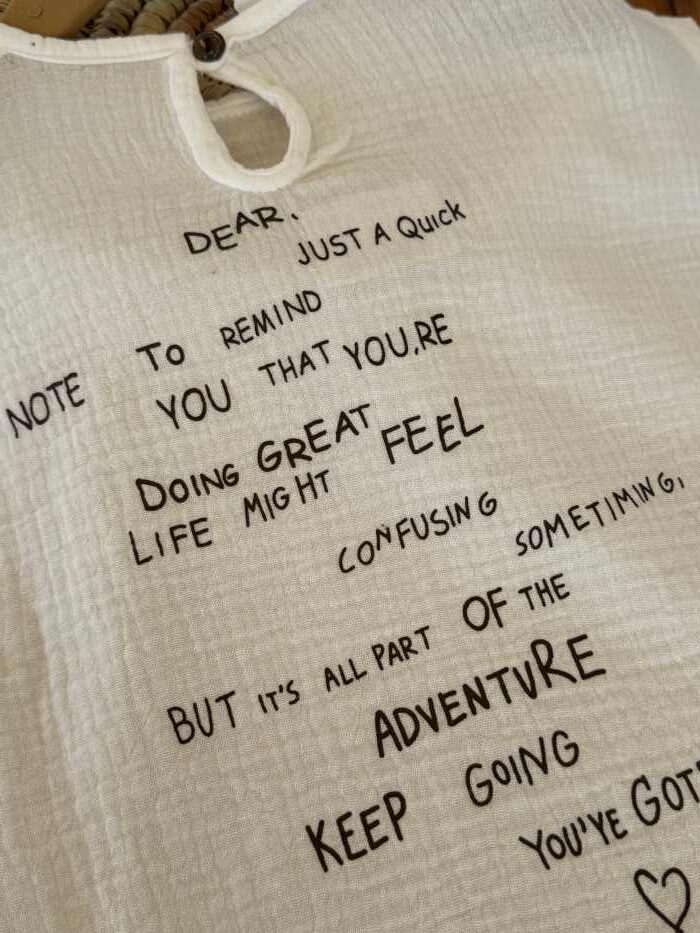 DEAR.
JUST A QuicK
NOTE TO REMIND
YOU THAT YOU,RE
DOING GREAT
LIFE MIGHT FEEL
CONFUSING
SOMETIMING,
BUT IT'S ALL PART OF THE
ADVENTURE
KEEP GOING
YOU'YE GOT'